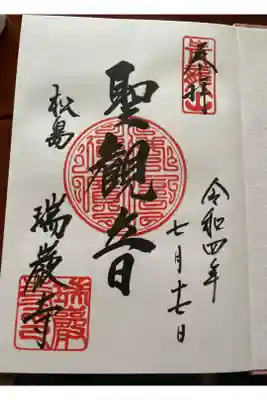 奉拝
令和四年
七月十七日
聖観音
松島
瑞巌寺